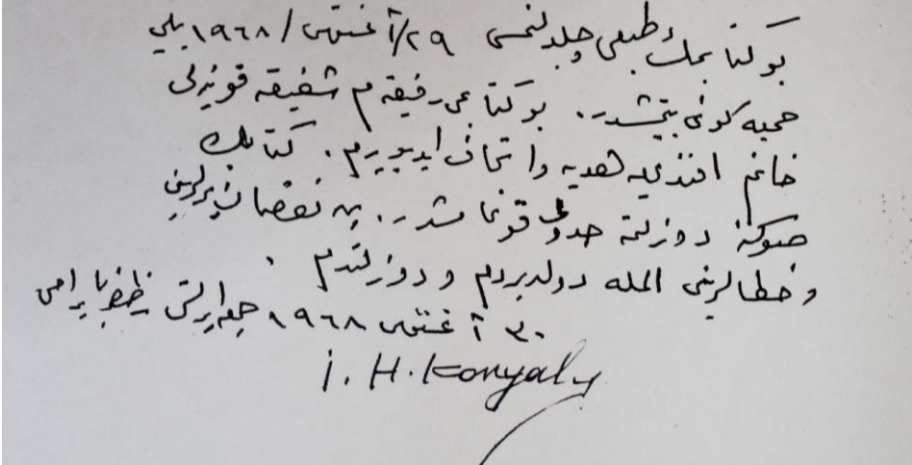 بو كتابمك طبعى و جلدلنمسى ٢٩/آغستوس/١٩٦٨ ييلى
جمعه كونى بيتمشدر. بو كتابمى رفيقه م شفيقه قونيه لى
خانم افندى يه هديه و اتحاف ايدييورم. كتابك
صوكنه دوزلتمه جدولى قونمامشدر. بن نقصان يرلرينى
و خطالرينى المله دولديردم و دوزلتدم.
٣٠ آغستوس ١٩٦٨ جمعه ايرتسى ظفر بايرامى
İ. H. Konyalı